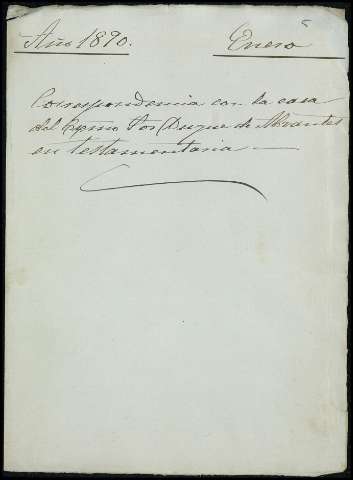 Año 1890. Enero
Correspondencia con la casa
del Exmo Sor Duque de Abrantes
en testamentaria